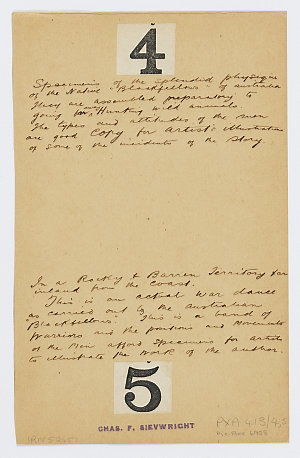 4
Specimens of the splendid physique
of the Native "Blackfellows" of Australia
They are assembled preparatory to
going away Hunting wild animals.
The types and attitudes of the men
are good Copy for Artist's illustration
of some of the incidents of the Story.
In a Rocky & Barren Territory far
inland from the Coast.
This is an actual War dance
as carried out by the Australian
Blackfellows. This is a band of
Warriors and the positions and Movements
of the Men afford specimens for artists
to illustrate the Work of the author.
5
CHAS. F. SIEVWRIGHT
PXA 413/4,5